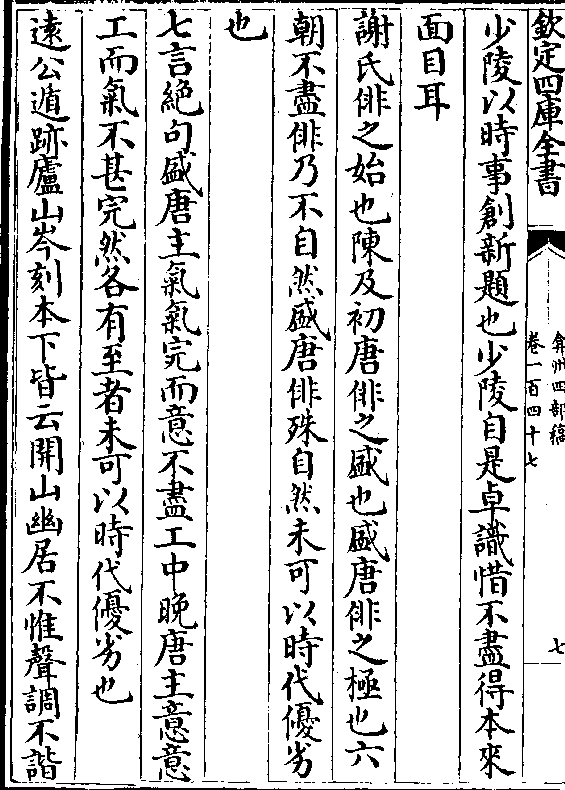 欽定四庫全書
弇州四部稿
卷一百四十七
七
少陵以時事創新題也少陵自是卓識惜不盡得本來
面目耳
謝氏俳之始也陳及初唐俳之盛也盛唐俳之極也六
朝不盡俳乃不自然盛唐俳殊自然未可以時代優劣
也
七言絶句盛唐主氣氣完而意不盡工中晚唐主意意
工而氣不甚完然各有至者未可以時代優劣也
遠公遁跡廬山岑刻本下皆云開山幽居不惟聲調不諧